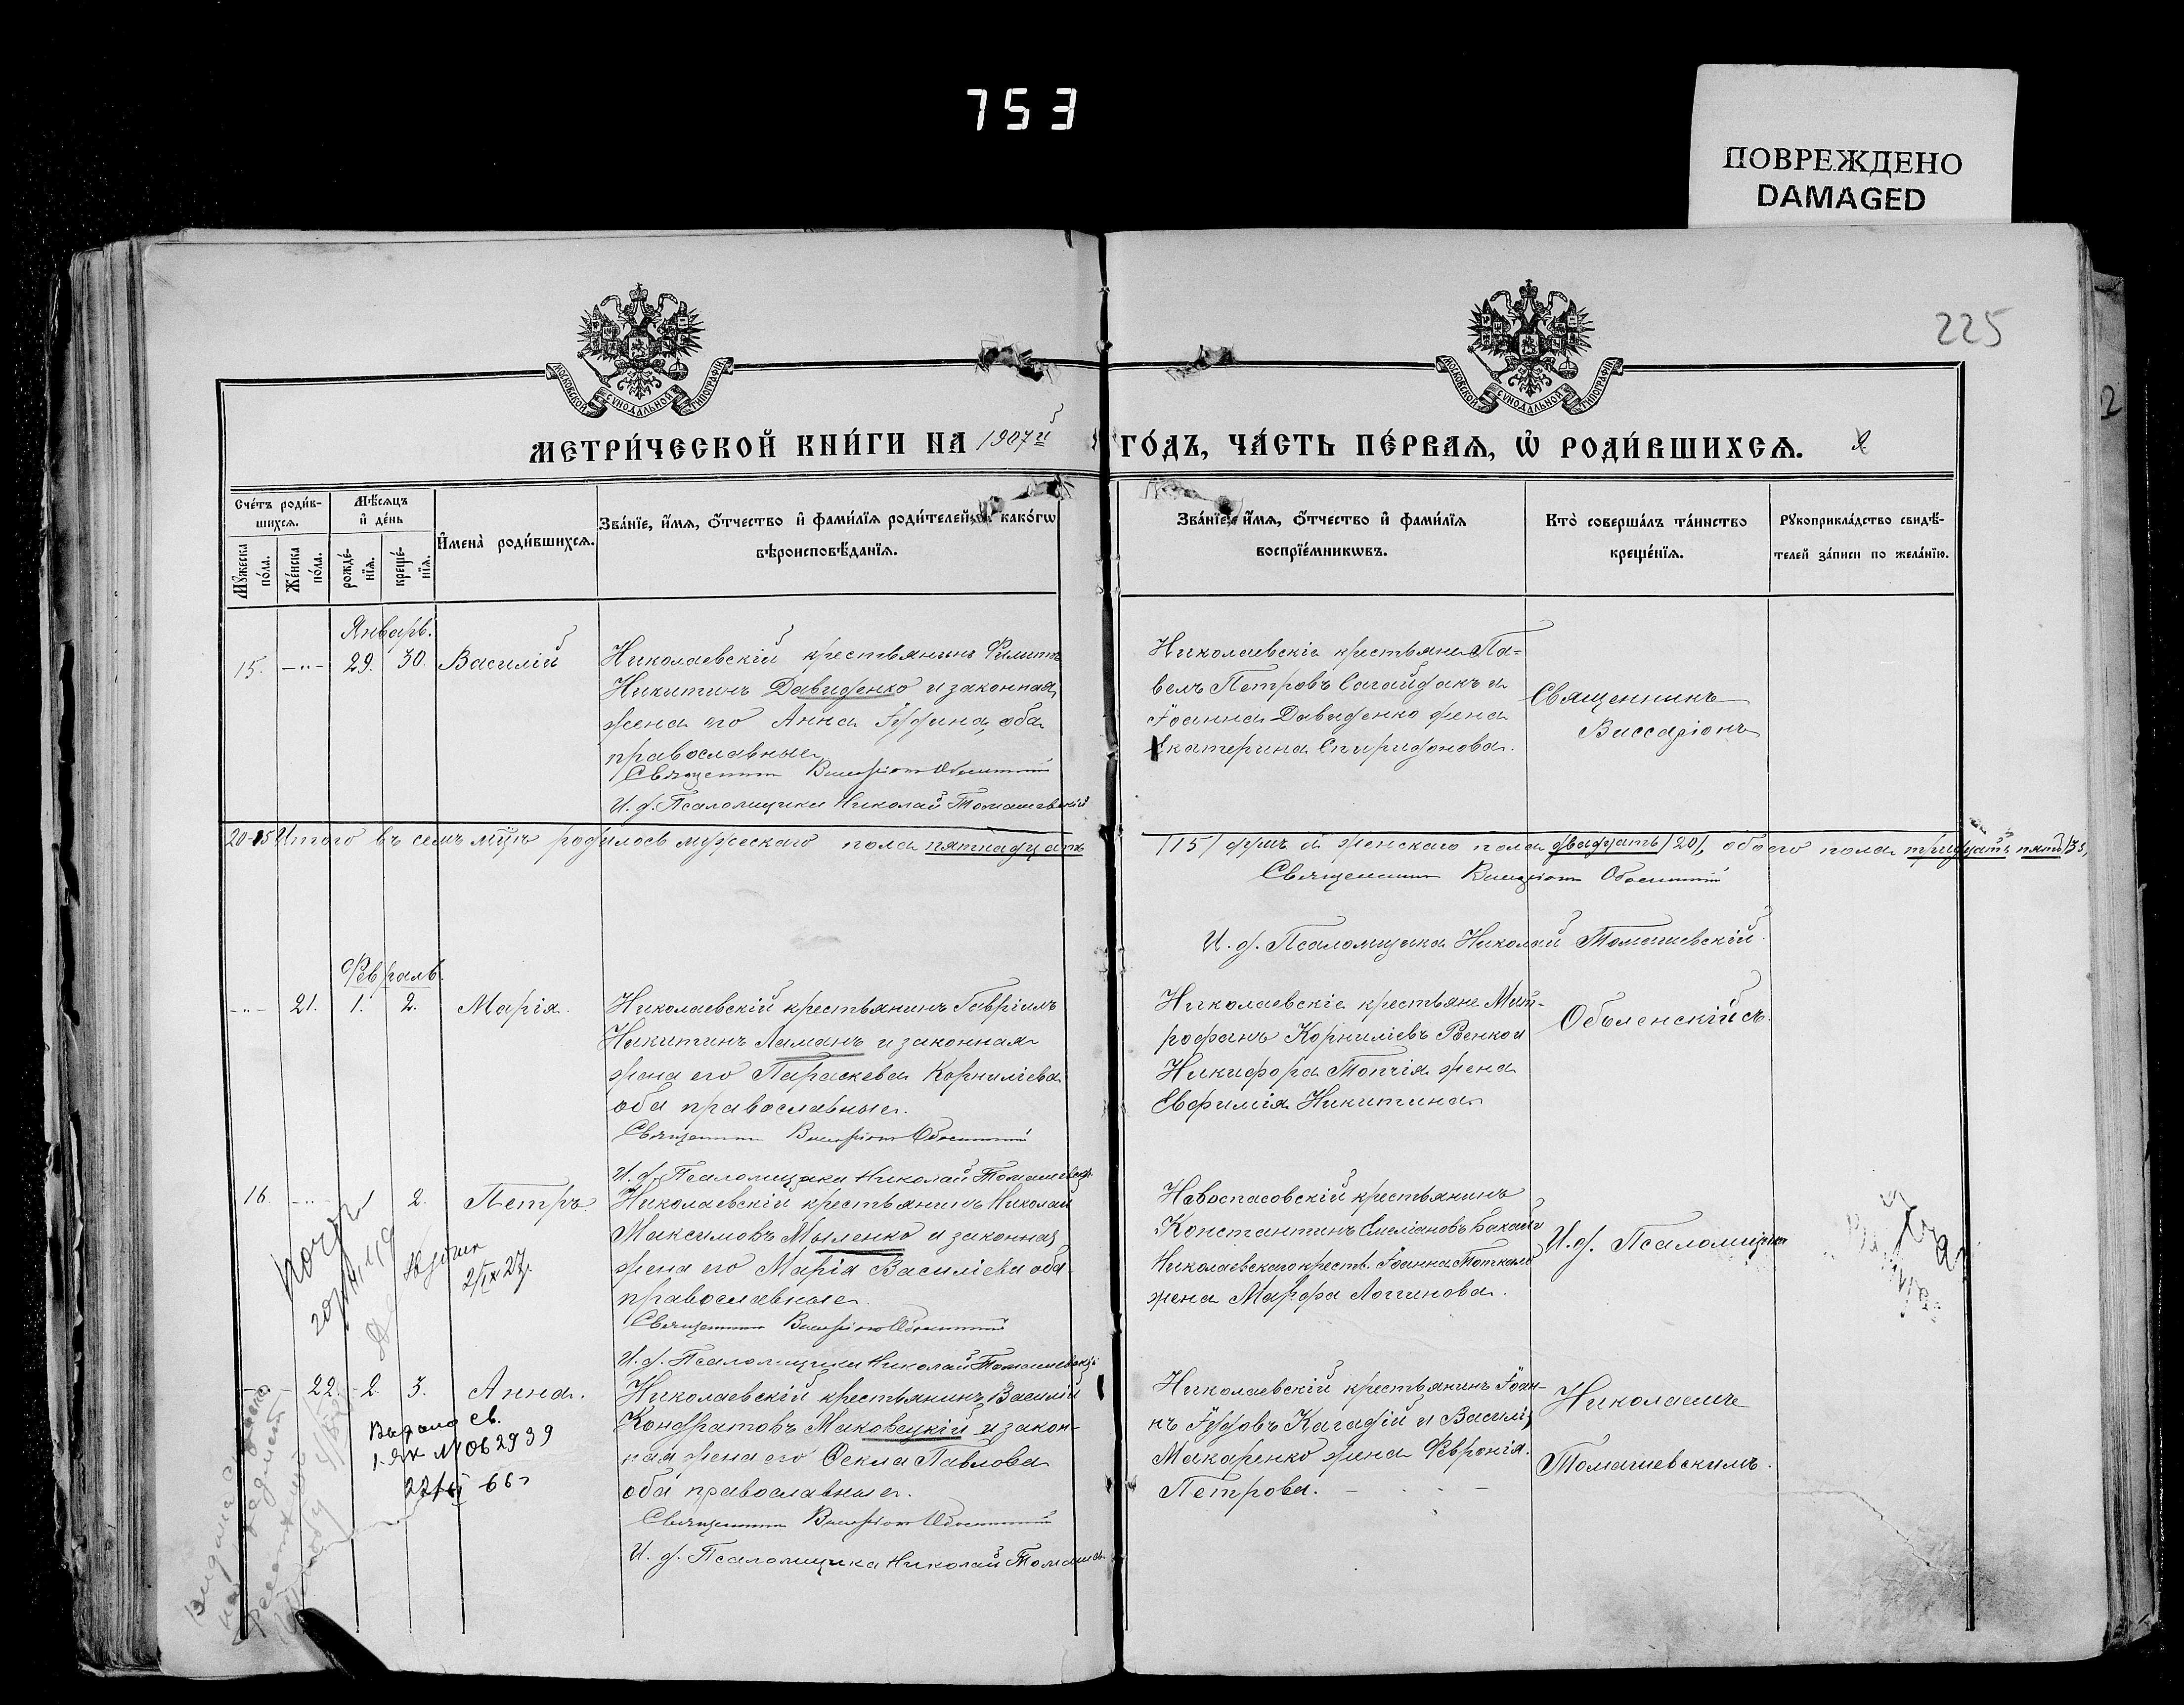 753
ПОВРЕЖДЕНО
DAMAGED
225
2
МОСКОВСКОЙ СѴНОДАЛЬНОЙ ТИПОГРАФІИ
МОСКОВСКОЙ СѴНОДАЛЬНОЙ ТИПОГРАФІИ
МЕТРИ́ЧЕСКОЙ КНИ́ГИ НА 1907й ГО́ДЪ, ЧА́СТЬ ПЕ́РВАѦ, Ѡ҆ РОДИ́ВШИХСѦ.
Сче́тъ роди́вшихсѧ.
Мꙋ́жеска по́ла.
Же́нска по́ла.
Мѣ́сѧцъ и҆ де́нь
рожде́нїѧ.
креще́нїѧ.
И҆мена̀ роди́вшихсѧ.
Зва́нїе, и҆́мѧ, ѻ҆́тчество и҆ фами́лїѧ роди́телей, и҆ како́гѡ
вѣроисповѣ́данїѧ.
Зва́нїе, и҆́мѧ, ѻ҆́тчество и҆ фами́лїѧ
воспрїе́мникѡвъ.
Кто̀ соверша́лъ та́инство
креще́нїѧ.
Рꙋкоприкла́дство свидѣ́-
телей за́писи по жела́нїю.
Январь.
15. -"- 29. 30. Василій
Николаевскій крестьянинъ Филиппъ
Никитинъ Давиденко и законная
жена его Анна Іудина, оба
православные
Священникъ Виссаріонъ Оболенскій
И. д. Псаломщика Николай Томашевскій
Николаевскіе крестьяне Па-
велъ Петровъ Сагайдакъ и
Іоанна Давиденко жена
Екатерина Спиридонова.
Священникъ
Виссаріонъ
20-15 Итого въ семъ мцѣ родилось мужескаго пола пятнадцать /15/ душъ и женскаго пола двадцать /20/, обоего пола тридцать пять /35/
Священникъ Виссаріонъ Оболенскій
И. д. Псаломщика Николай Томашевскій.
Февраль.
-"- 21. 1. 2. Марія.
Николаевскій крестьянинъ Гавріилъ
Никитинъ Ламанъ и законная
жена его Параскева Корниліева
оба православные.
Священникъ Виссаріонъ Оболенскій
И. д. Псаломщика Николай Томашевскій
Николаевскіе крестьяне Мит-
рофанъ Корниліевъ Роенко и
Никифора Топчія жена
Евфимія Никитина
Оболенскій съ
16. -"- 1 2. Петръ.
Николаевскій крестьянинъ Николай
Максимовъ Мыленко и законная
жена его Марія Василіева оба
православные.
Священникъ Виссаріонъ Оболенскій
И. д. Псаломщика Николай Томашевскій
Новоспасовскій крестьянинъ
Константинъ Емеліановъ
Николаевскаго крест. Іоанна
жена Марфа Логгинова.
И. д. Псаломщика
22. 2. 3. Анна.
Николаевскій крестьянинъ Василій
Кондратовъ Маковецкій и закон-
ная жена его Ѳекла Павлова
оба православные.
Священникъ Виссаріонъ Оболенскій
И. д. Псаломщика Николай Томашев.
Николаевскій крестьянинъ Іоан-
нъ Іудовъ Кагадій и Василія
Макаренко жена Февронія
Петрова.
Николаемъ
Томашевскимъ.
Выдано св.
№ 062939